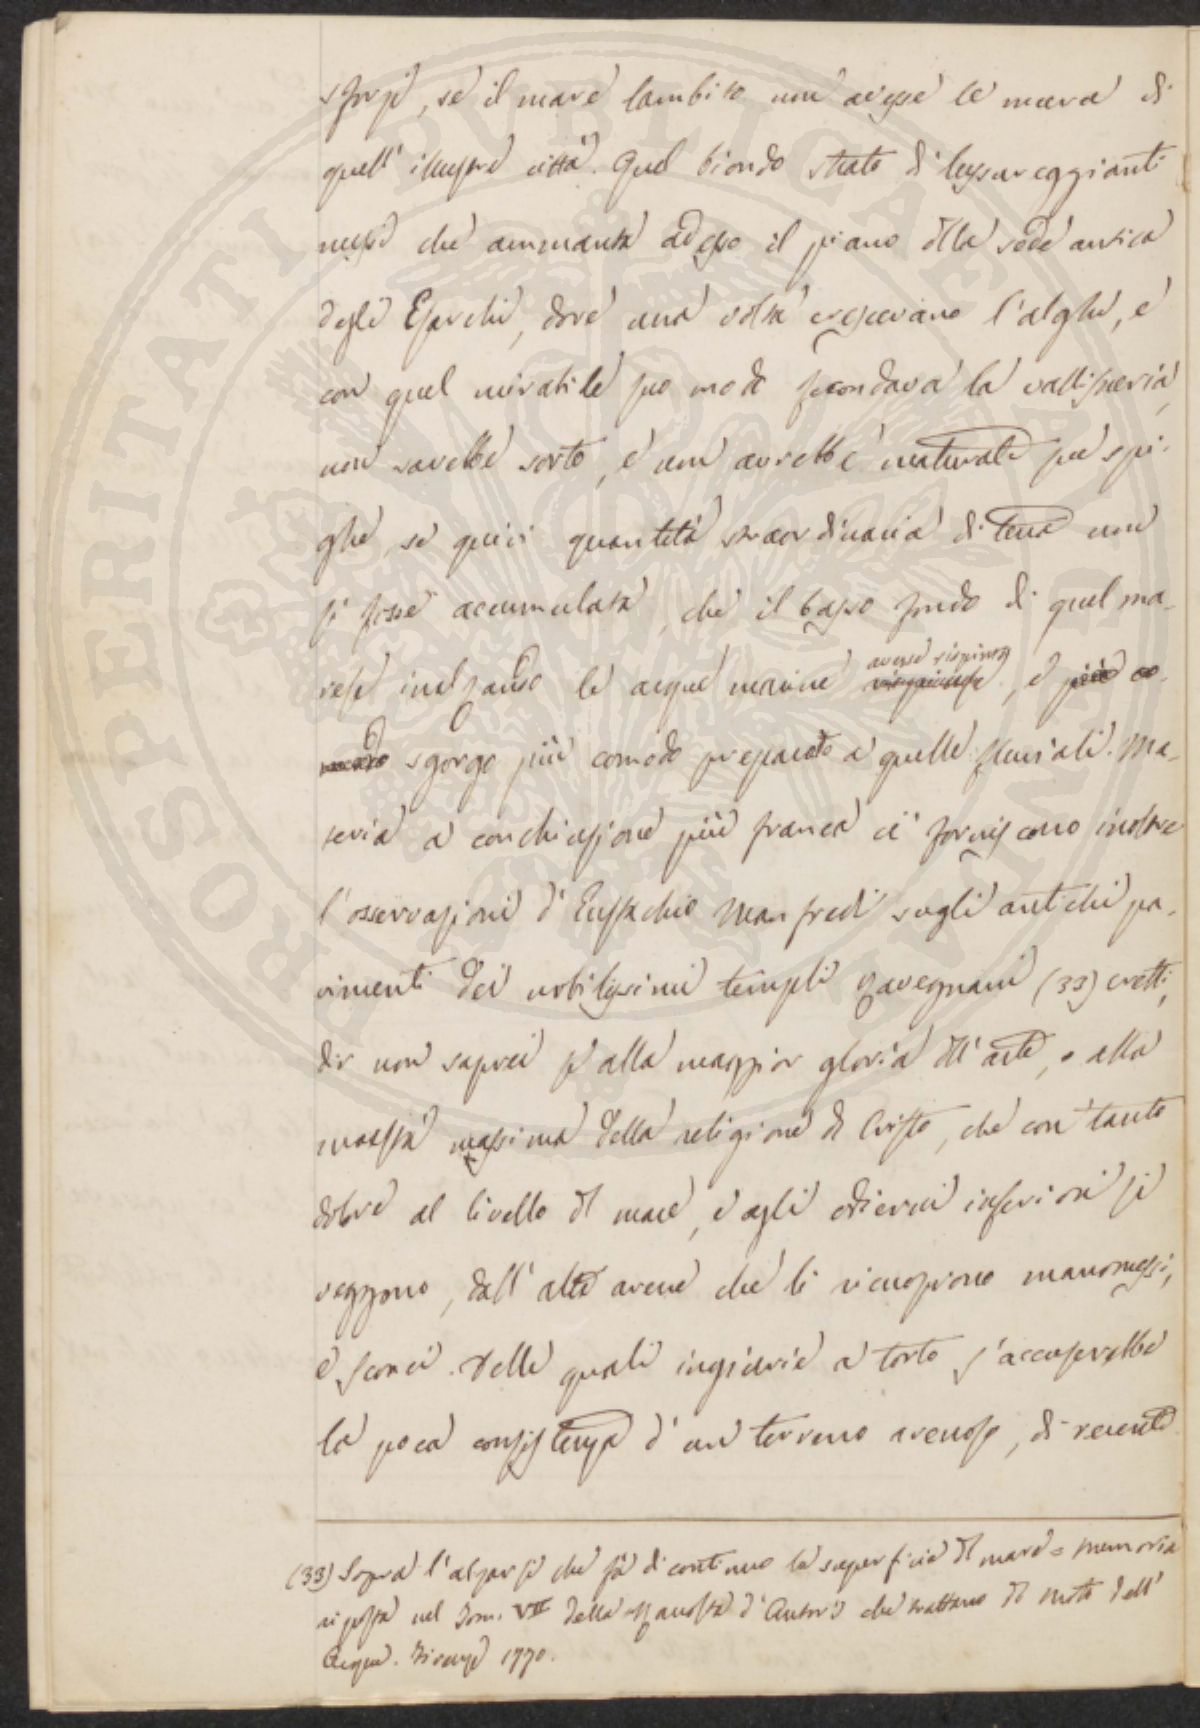 sforzi, se il mare lambito non avesse le mura di
quell' illustre città. Quel biondo strato di lussureggianti
messi che ammanta adesso il piano della sede antica
degli Esarchi, dove una volta crescevano l'alghe, e
con quel mirabile suo modo fecondava la vallisneria,
non sarebbe sorto, e non avrebbe maturate sue spi-
ghe, se quivi quantità straordinaria di terra non
si fosse accumulata, che il basso fondo di quel ma-
re inalzando le acque marine avesse rispinto, e più co-
modo sgorgo più comodo preparato a quelle fluviali. Ma-
teria a conchiusione più franca ci forniscono inoltre
l'osservazioni d'Eustachio Manfredi sugli antichi pa-
vimenti dei nobilissimi templi Ravegnani (33) eretti,
dir non saprei se alla maggior gloria dell'arte, o alla
maestà massima della religione di Cristo, che con tanto
dolore al livello del mare, e agli odierni inferiori si
veggono, dall' alte arene che li ricuoprono manomessi,
e sconci. Delle quali ingiurie a torto s'accuserebbe
la poca consistenza d'un terreno arenoso, di recente
(33) Sopra l'alzarsi che fà di continuo la superficie del mare = Memoria
riposta nel Tom. VII della Raccolta d'Autori che trattano del Moto dell'
Acque. Firenze 1770.
PROSPERITATI PUBLICAE AUGENDAE